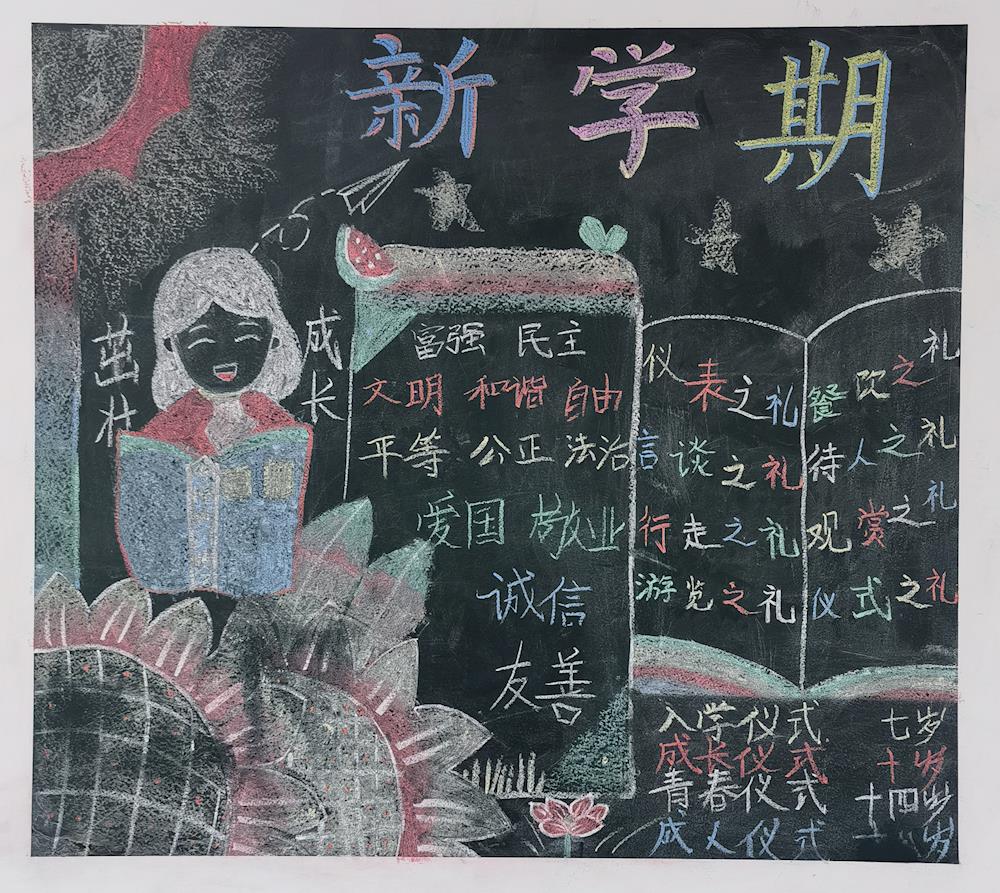 新学期
茁壮
成长
富强 民主
文明 和谐 自由
平等 公正 法治
爱国 敬业
诚信
友善
仪表之礼
言谈之礼
行走之礼
游览之礼
餐饮之礼
待人之礼
观赏之礼
仪式之礼
入学仪式 七岁
成长仪式 十岁
青春仪式 十四岁
成人仪式 十八岁